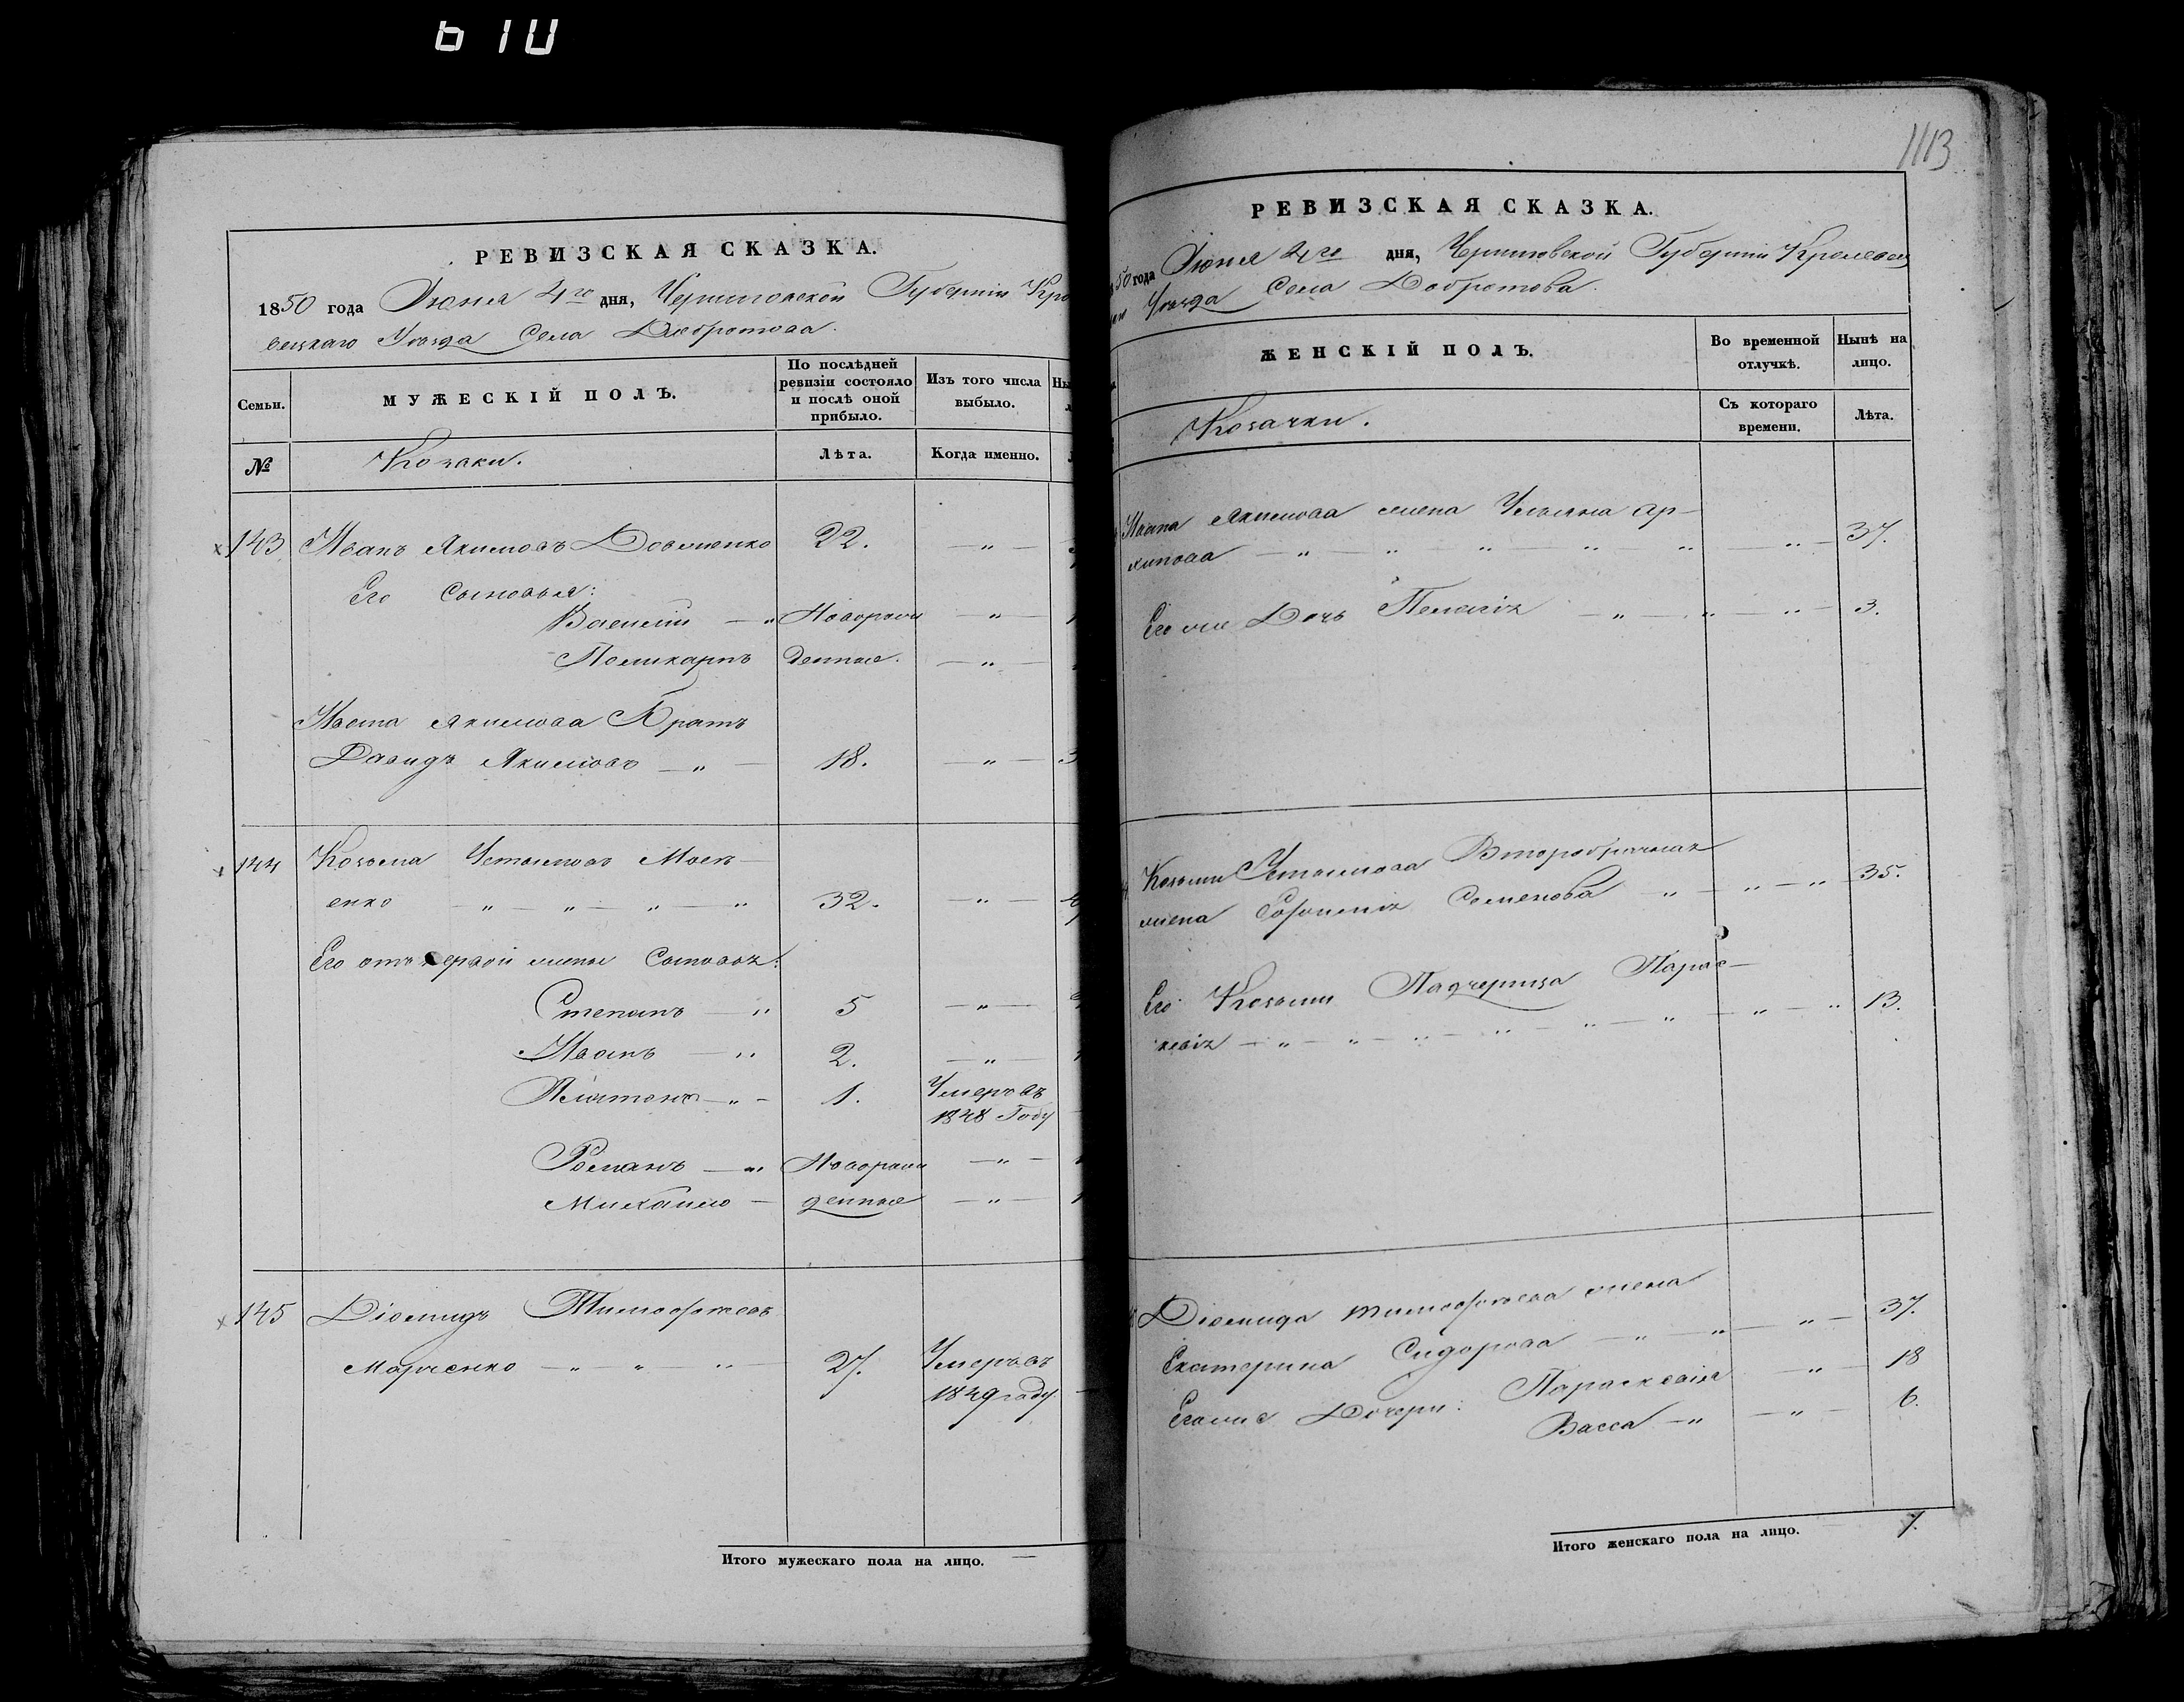 610
РЕВИЗСКАЯ СКАЗКА.
1850 года Июня 4го дня, Черниговской Губернiи Кро
вецкаго Уѣзда Села Добротова.
Семьи.
МУЖЕСКIЙ ПОЛЪ.
По послѣдней
ревизiи состояло
и послѣ оной
прибыло.
Изъ того числа
выбыло.
Ны
№
Козаки.
Лѣта.
Когда именно.
143 Иванъ Якимовъ Довженко 22. — " —
Его Сыновья:
Василiй — " Новорож — " —
Поликарпъ денные. — " —
Ивана Якимова Братъ
Давидъ Якимовъ — " — 18. — " — 3
144 Козьма Устимовъ
енко — " — " — " — " 32. — " —
Его отъ первой жены Сыновья:
Степанъ — " 5 — " —
Иванъ — " 2. — "
Платонъ — " — 1. Умеръ въ
1848 Году
Романъ — " Новорож — " —
Михайло — денные — " —
145 Дiомидъ Тимофѣевъ
Марченко — " — " — " — 27. Умеръ въ
1849 году
Итого мужескаго пола на лицо. —
1113
РЕВИЗСКАЯ СКАЗКА.
50 года Июня 4го дня, Черниговской Губернiи Кролевец
Уѣзда Села Добротова.
ЖЕНСКIЙ ПОЛЪ.
Во временной
отлучкѣ.
Нынѣ на
лицо.
Козачки.
Съ котораго
времени.
Лѣта.
Ивана Якимова жена Ульяна Ар-
хипова — " — " — " — " — " — " — 37.
Его же Дочь Пелагiя — " — " — " — 3.
Козьми Устимова Второбрачная
жена Софонiя Семенова — " — " — " — 35.
Его Козьми Падчерица Парас-
кевiя — " — " — " — " — " — " — " — " 13.
Дiомида Тимофѣева жена
Екатерина Сидорова — " — " — " — 37.
Егоже Дочери: Параскевiя — " — 18
Васса — " — " — 6.
Итого женскаго пола на лицо. 7.